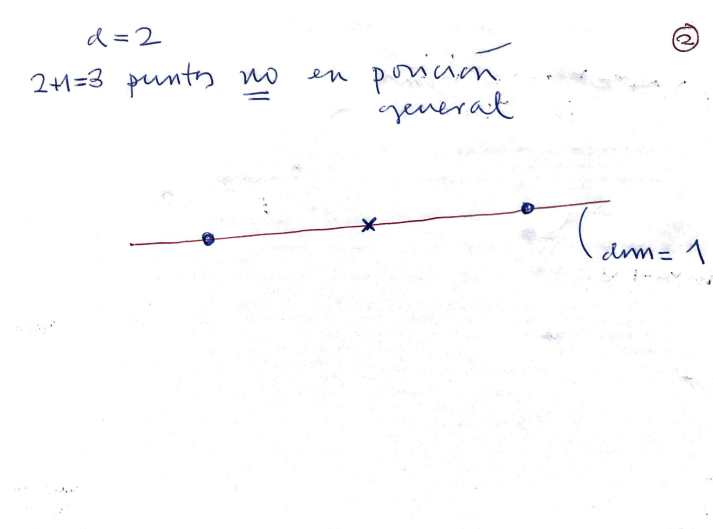 ②
d = 2
2+1=3 puntos no en posición
general
dim = 1